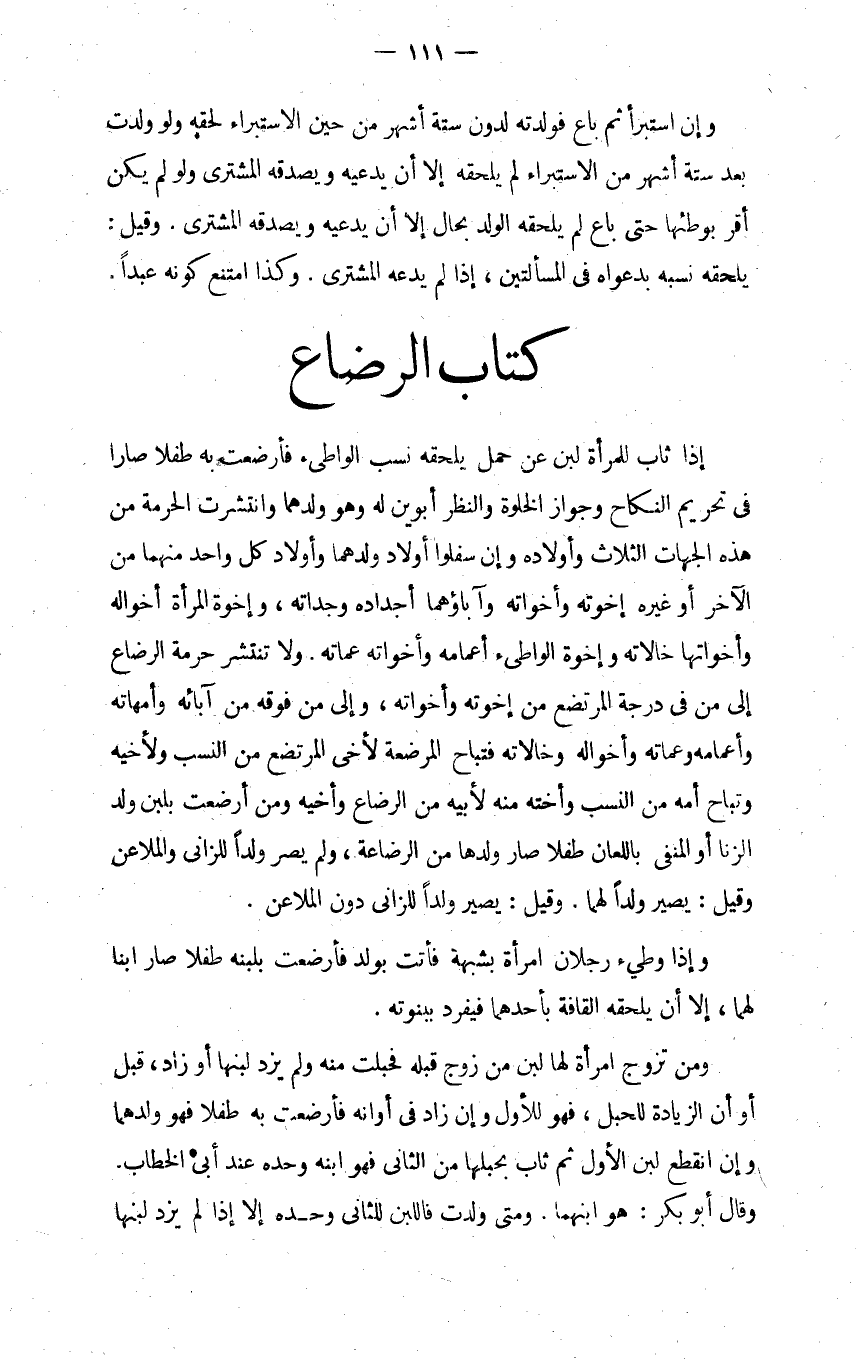 — ١١١ —
وإن استبرأ ثم باع فولدته لدون ستة أشهر من حين الاستبراء لحقه ولو ولدت
بعد ستة أشهر من الاستبراء لم يلحقه إلا أن يدعيه ويصدقه المشترى ولو لم يكن
أقر بوطئها حتى باع لم يلحقه الولد بحال إلا أن يدعيه ويصدقه المشترى . وقيل :
يلحقه نسبه بدعواه فى المسألتين ، إذا لم يدعه المشترى . وكذا امتنع كونه عبداً .
كتاب الرضاع
إذا ثاب للمرأة لبن عن حمل يلحقه نسب الواطىء فأرضعت به طفلا صارا
فى تحريم النكاح وجواز الخلوة والنظر أبوين له وهو ولدهما وانتشرت الحرمة من
هذه الجهات الثلاث وأولاده وإن سفلوا أولاد ولدهما وأولاد كل واحد منهما من
الآخر أو غيره إخوته وأخواته وآباؤهما أجداده وجداته ، وإخوة المرأة أخواله
وأخواتها خالاته وإخوة الواطىء أعمامه وأخواته عماته . ولا تنتشر حرمة الرضاع
إلى من فى درجة المرتضع من إخوته وأخواته ، وإلى من فوقه من آبائه وأمهاته
وأعمامه وعماته وأخواله وخالاته فتباح المرضعة لأخى المرتضع من النسب ولأخيه
وتباح أمه من النسب وأخته منه لأبيه من الرضاع وأخيه ومن أرضعت بلبن ولد
الزنا أو المنفى باللعان طفلا صار ولدها من الرضاعة ، ولم يصر ولداً للزانى والملاعن
وقيل : يصير ولداً لهما . وقيل : يصير ولداً للزانى دون الملاعن .
وإذا وطيء رجلان امرأة بشبهة فأتت بولد فأرضعت بلبنه طفلا صار ابنا
لهما ، إلا أن يلحقه القافة بأحدهما فيفرد ببنوته .
ومن تزوج امرأة لها لبن من زوج قبله فحبلت منه ولم يزد لبنها أو زاد ، قبل
أو أن الزيادة للحبل ، فهو للأول وإن زاد فى أوانه فأرضعت به طفلا فهو ولدهما
وإن انقطع لبن الأول ثم ثاب بحبلها من الثانى فهو ابنه وحده عند أبى الخطاب.
وقال أبو بكر : هو ابنهما . ومتى ولدت فاللبن للثانى وحـده إلا إذا لم يزد لبنها